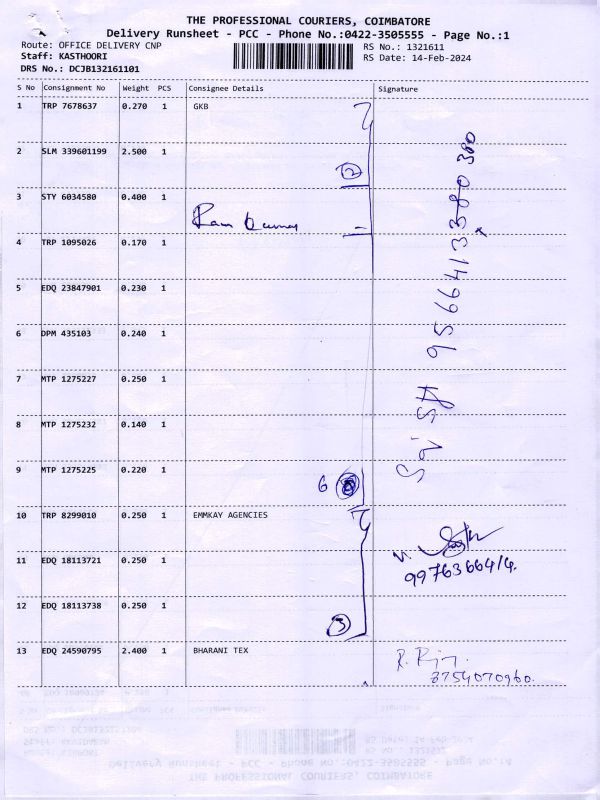 THE PROFESSIONAL COURIERS, COIMBATORE
Delivery Runsheet - PCC - Phone No.:0422-3505555 - Page No.:1
Route: OFFICE DELIVERY CNP
RS No.: 1321611
Staff: KASTHOORI
RS Date: 14-Feb-2024
DRS No.: DCJB132161101
S No Consignment No Weight PCS Consignee Details Signature
1 TRP 7678637 0.270 1 GKB
2 SLM 339601199 2.500 1
12
3 STY 6034580 0.400 1
Ram Kumar
4 TRP 1095026 0.170 1
5 EDQ 23847901 0.230 1
6 DPM 435103 0.240 1
7 MTP 1275227 0.250 1
8 MTP 1275232 0.140 1
9 MTP 1275225 0.220 1
6
10 TRP 8299010 0.250 1 EMMKAY AGENCIES
11 EDQ 18113721 0.250 1
9976366414.
12 EDQ 18113738 0.250 1
3
13 EDQ 24590795 2.400 1 BHARANI TEX
8754070960.